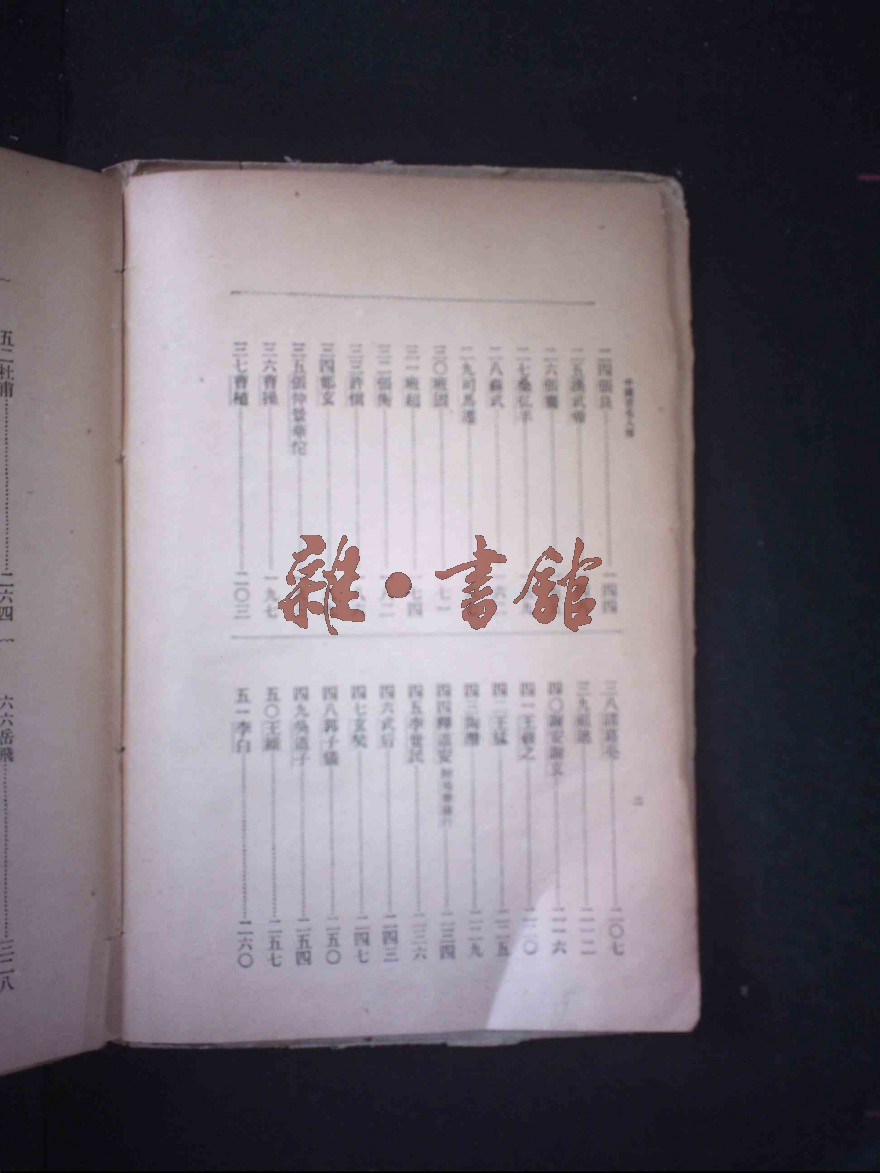 二四張良……一四四
二五漢武帝
二六張騫
二七桑弘羊
二八蘇武
二九司馬遷
三〇班固
三一班超……一七四
三二張衡
三三許慎
三四鄭玄
三五張仲景華佗
三六曹操……一九七
三七曹植……二〇三
三八諸葛亮……二〇七
三九祖逖……二一二
四〇謝安謝玄……二一六
四一王羲之……二二〇
四二王猛……二二五
四三陶潛……二二九
四四釋道安……二三四
四五李世民……二三六
四六武后……二四三
四七玄奘……二四七
四八郭子儀……二五〇
四九吳道子……二五四
五〇王維……二五七
五一李白……二六〇
五二杜甫……二六四
六六岳飛……三二八
雜·書館